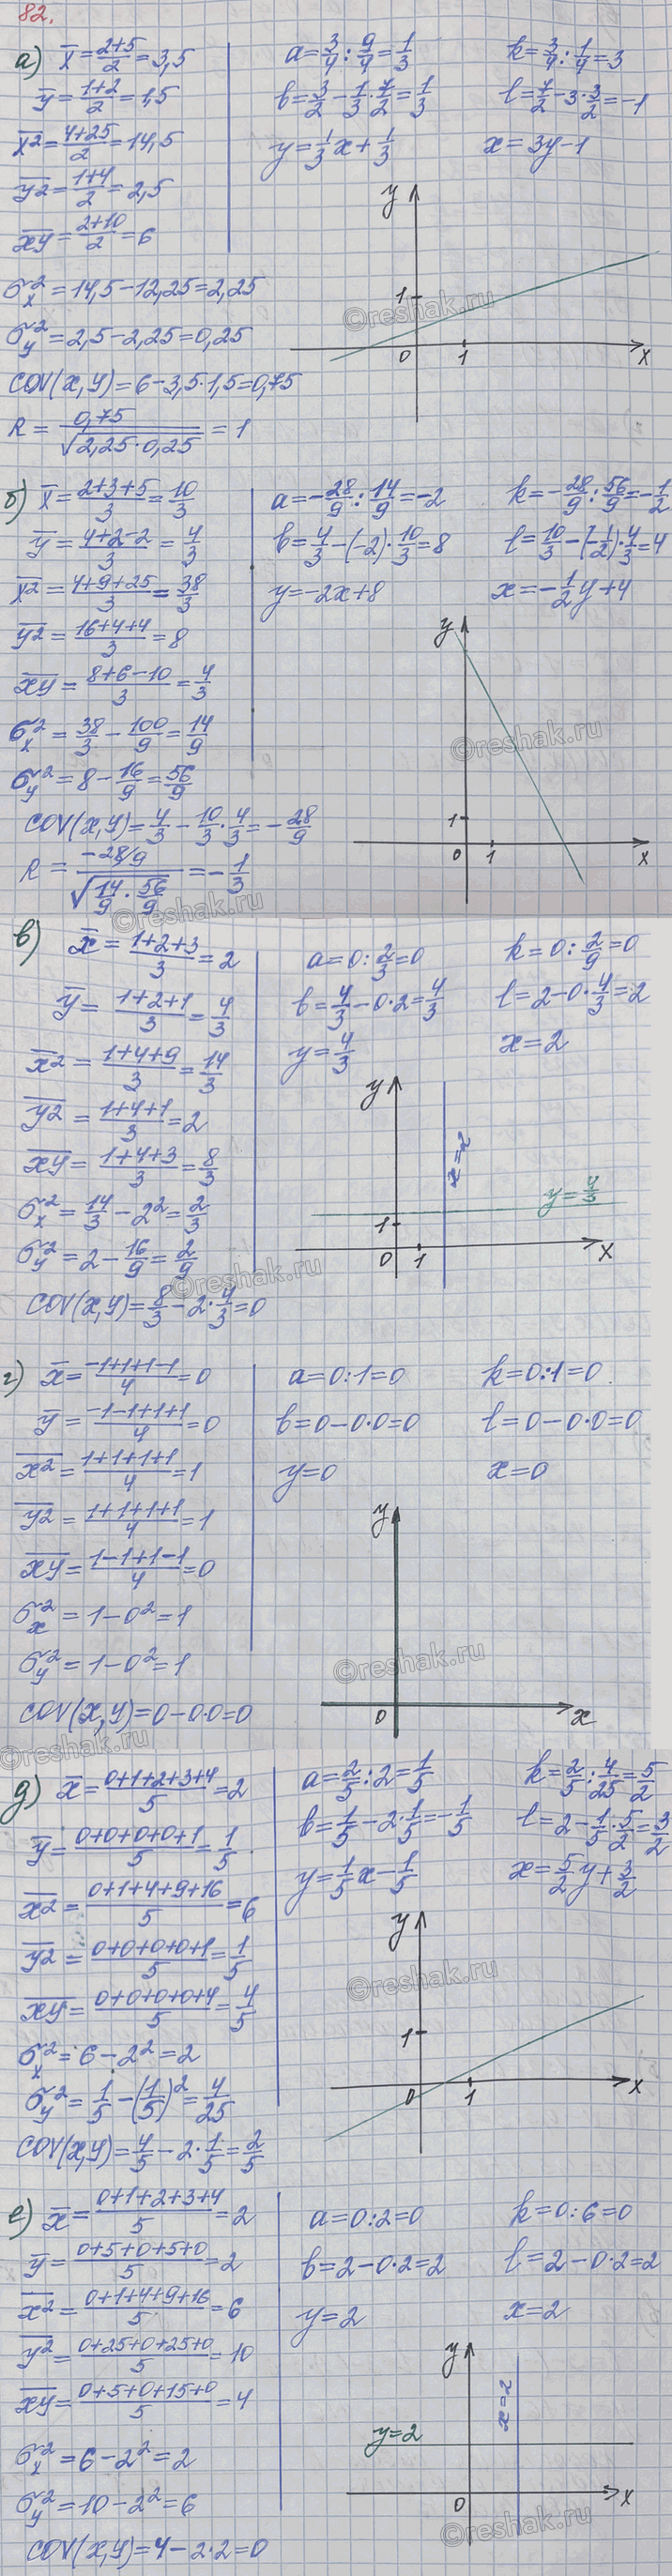 82.
а) x̅ = (2+5)/2 = 3,5
y̅ = (1+2)/2 = 1,5
x̅² = (4+25)/2 = 14,5
y̅² = (1+4)/2 = 2,5
x̅y̅ = (2+10)/2 = 6
a = 3/4 : 9/4 = 1/3
b = 3/2 − 1/3 · 7/2 = 1/3
y = 1/3 x + 1/3
k = 3/4 : 1/4 = 3
l = 7/2 − 3 · 3/2 = −1
x = 3y − 1
y
1
0 1 x
©reshak.ru
σx² = 14,5 − 12,25 = 2,25
σy² = 2,5 − 2,25 = 0,25
cov(x,y) = 6 − 3,5 · 1,5 = 0,75
R = 0,75/√(2,25 · 0,25) = 1
б) x̅ = (2+3+5)/3 = 10/3
y̅ = (4+2−2)/3 = 4/3
x̅² = (4+9+25)/3 = 38/3
y̅² = (16+4+4)/3 = 8
x̅y̅ = (8+6−10)/3 = 4/3
σx² = 38/3 − 100/9 = 14/9
σy² = 8 − 16/9 = 56/9
cov(x,y) = 4/3 − 10/3 · 4/3 = −28/9
R = (−28/9)/√(14/9 · 56/9) = −1/3
a = −28/9 : 14/9 = −2
b = 4/3 − (−2) · 10/3 = 8
y = −2x + 8
k = −28/9 : 56/9 = −1/2
l = 10/3 − (−1/2) · 4/3 = 4
x = −1/2 y + 4
y
1
0 1 x
©reshak.ru
©reshak.ru
в) x̅ = (1+2+3)/3 = 2
y̅ = (1+2+1)/3 = 4/3
x̅² = (1+4+9)/3 = 14/3
y̅² = (1+4+1)/3 = 2
x̅y̅ = (1+4+3)/3 = 8/3
σx² = 14/3 − 2² = 2/3
σy² = 2 − 16/9 = 2/9
cov(x,y) = 8/3 − 2 · 4/3 = 0
a = 0 : 2/3 = 0
b = 4/3 − 0 · 2 = 4/3
y = 4/3
k = 0 : 2/9 = 0
l = 2 − 0 · 4/3 = 2
x = 2
y
x = 2
y = 4/3
1
0 1 x
©reshak.ru
г) x̅ = (−1+1+1−1)/4 = 0
y̅ = (−1−1+1+1)/4 = 0
x̅² = (1+1+1+1)/4 = 1
y̅² = (1+1+1+1)/4 = 1
x̅y̅ = (1−1+1−1)/4 = 0
σx² = 1 − 0² = 1
σy² = 1 − 0² = 1
cov(x,y) = 0 − 0·0 = 0
a = 0 : 1 = 0
b = 0 − 0·0 = 0
y = 0
k = 0 : 1 = 0
l = 0 − 0·0 = 0
x = 0
y
0 x
©reshak.ru
©reshak.ru
д) x̅ = (0+1+2+3+4)/5 = 2
y̅ = (0+0+0+0+1)/5 = 1/5
x̅² = (0+1+4+9+16)/5 = 6
y̅² = (0+0+0+0+1)/5 = 1/5
x̅y̅ = (0+0+0+0+4)/5 = 4/5
σx² = 6 − 2² = 2
σy² = 1/5 − (1/5)² = 4/25
cov(x,y) = 4/5 − 2 · 1/5 = 2/5
a = 2/5 : 2 = 1/5
b = 1/5 − 2 · 1/5 = −1/5
y = 1/5 x − 1/5
k = 2/5 : 4/25 = 5/2
l = 2 − 1/5 · 5/2 = 3/2
x = 5/2 y + 3/2
y
1
0 1 x
©reshak.ru
е) x̅ = (0+1+2+3+4)/5 = 2
y̅ = (0+5+0+5+0)/5 = 2
x̅² = (0+1+4+9+16)/5 = 6
y̅² = (0+25+0+25+0)/5 = 10
x̅y̅ = (0+5+0+15+0)/5 = 4
σx² = 6 − 2² = 2
σy² = 10 − 2² = 6
cov(x,y) = 4 − 2·2 = 0
a = 0 : 2 = 0
b = 2 − 0·2 = 2
y = 2
k = 0 : 6 = 0
l = 2 − 0·2 = 2
x = 2
y
x = 2
y = 2
0 x
©reshak.ru